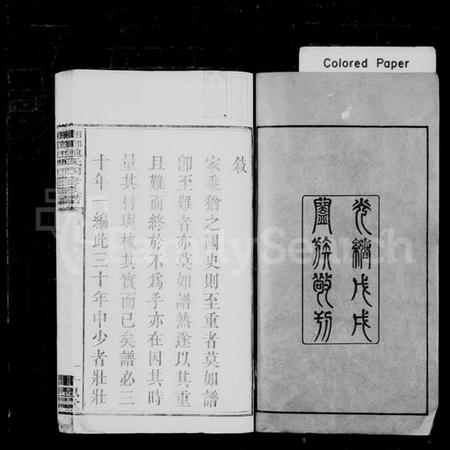 Colored Paper
光緒戊戌
闔族敬刊
敘
家乘猶之國史則至重者莫如譜
卽至難者亦莫如譜然遂以其重
且難而終於不爲乎亦在因其時
量其材與核其實而已矣譜必三
十年一編此三十年中少者壯壯
FamilySearch